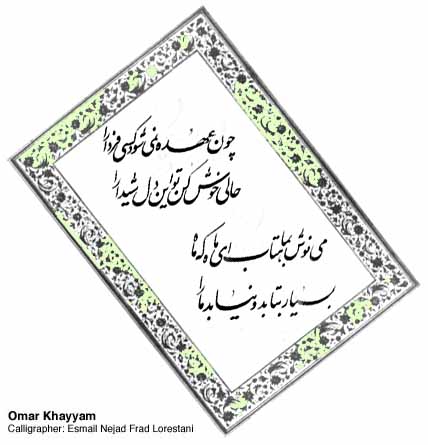 چون عهده نمی شود کسی فردا را
حالی خوش کن تو این دل شیدا را
می نوش بماهتاب ای ماه که ماه
بسیار بتابد و نیابد ما را
Omar Khayyam
Calligrapher: Esmail Nejad Frad Lorestani